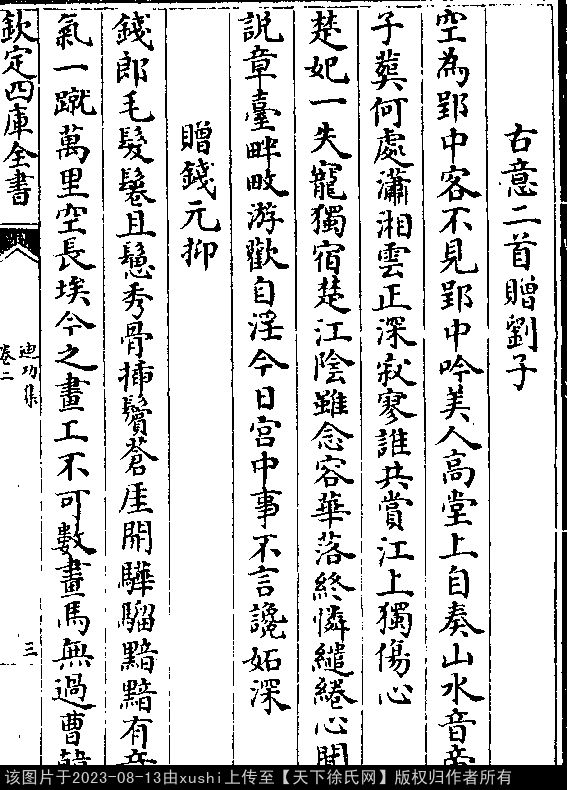 古意二首贈劉子
空為郢中客不見郢中吟美人高堂上自奏山水音帝
子葬何處瀟湘雲正深寂寥誰共賞江上獨傷心
楚妃一失寵獨宿楚江陰雖念容華落終憐繾綣心
說章臺畔畋游歡自淫今日宮中事不言讒妬深
贈錢元抑
錢郎毛髮鬈且鬆秀骨插鬢蒼厓開驊騮黯黯有
氣一蹴萬里空長埃今之畫工不可數畫馬無過曹韓
欽定四庫全書
迪功集
卷二
三
该图片于2023-08-13由xushi上传至【天下徐氏网】版权归作者所有